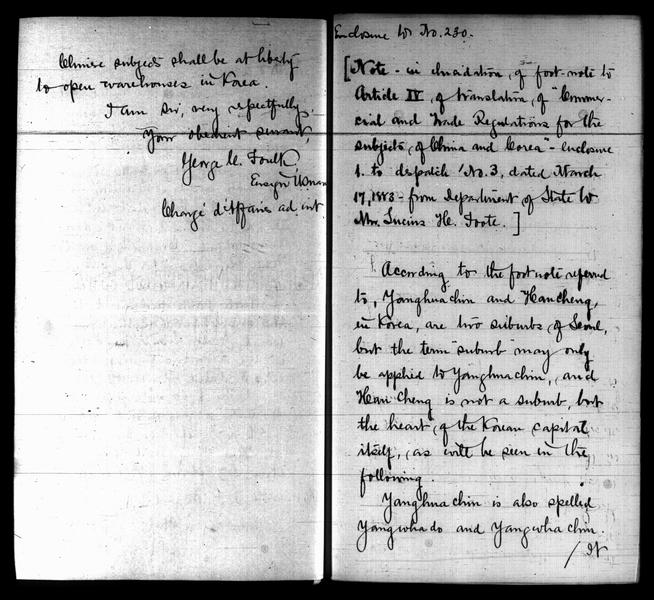 Chinese subjects shall be at liberty
to open warehouses in Korea.
I am sir, very respectfully,
Your obedient servant,
George C. Foulk
Ensign U.S. Navy
Chargé d'Affaires ad int.
Enclosure to No. 230.
[Note - in elucidation, of foot-note to
Article IV, of translation, of "Commer-
cial and Trade Regulations for the
subjects, of China and Corea" - enclosure
1. to dispatch No. 3, dated March
17, 1883 - from Department of State to
Mr. Lucius H. Foote.]
According to the foot note referred
to, Yanghuachin and Hancheng,
in Korea, are two suburbs, of Seoul,
but the term "suburb" may only
be applied to Yanghuachin, and
Han Cheng is not a suburb, but
the heart, of the Korean capital
itself, as will be seen in the
following.
Yanghuachin is also spelled
Yangwhado and Yangwhachin.
/It